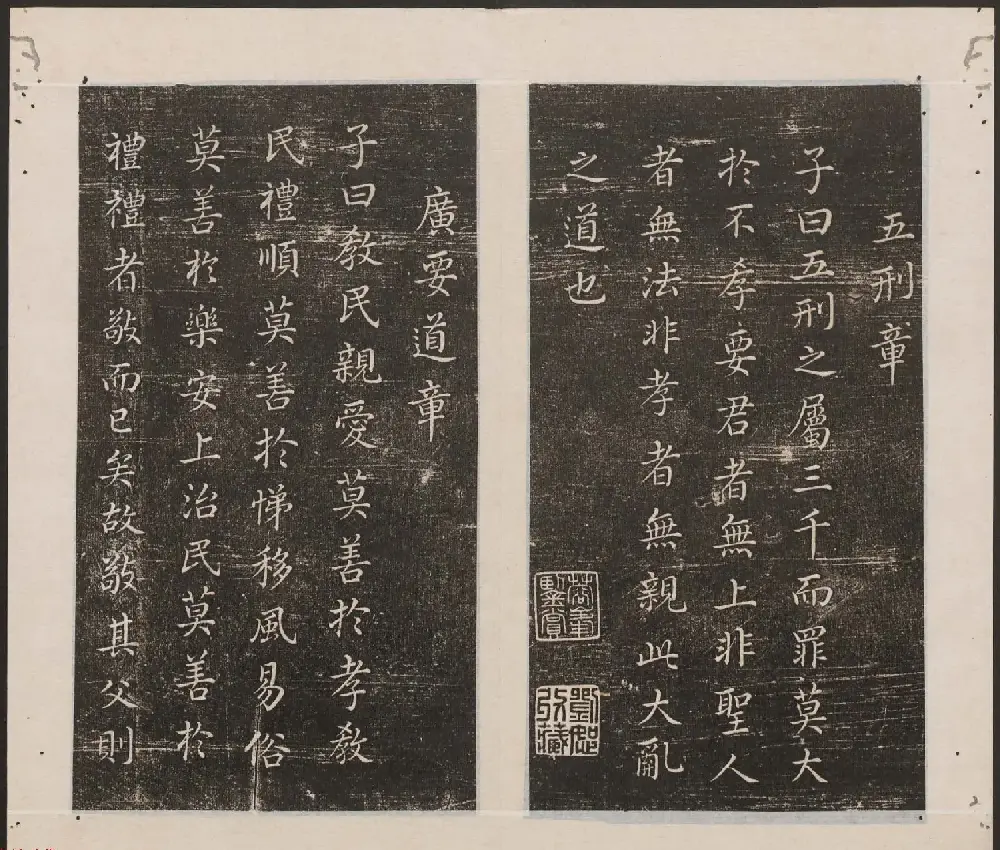 五刑章
子曰五刑之屬三千而罪莫大
於不孝要君者無上非聖人
者無法非孝者無親此大亂
之道也
廣要道章
子曰敎民親愛莫善於孝敎
民禮順莫善於悌移風易俗
莫善於樂安上治民莫善於
禮禮者敬而已矣故敬其父則